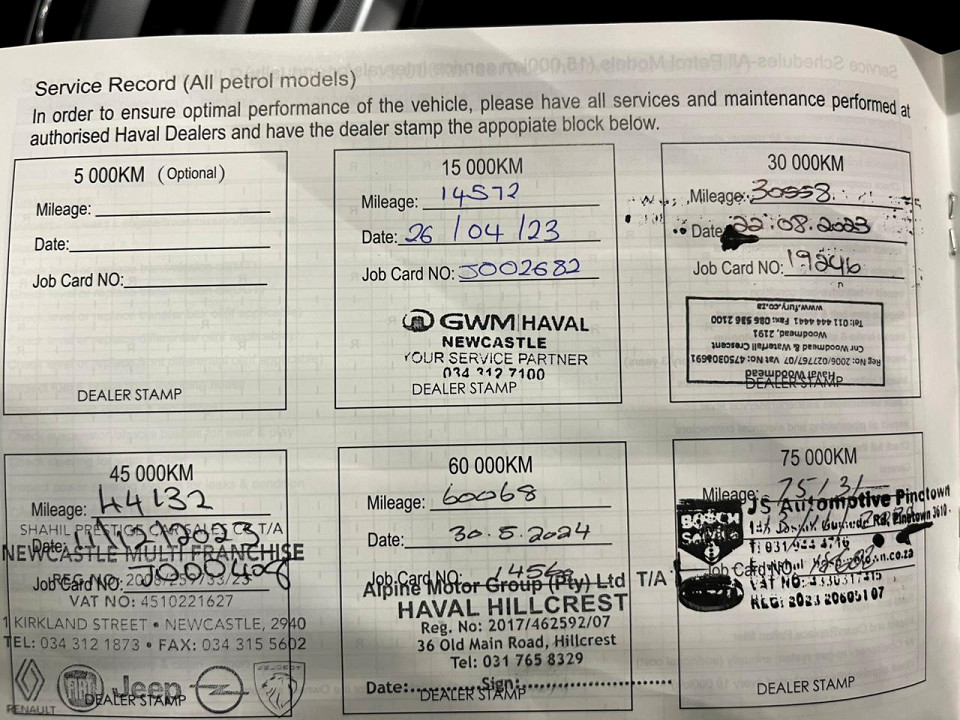 Service Record (All petrol models)
In order to ensure optimal performance of the vehicle, please have all services and maintenance performed at
authorised Haval Dealers and have the dealer stamp the appopiate block below.
5 000KM (Optional)
Mileage:
Date:
Job Card NO:
DEALER STAMP
15 000KM
Mileage: 14572
Date: 26/04/23
Job Card NO: J002682
GWM HAVAL
NEWCASTLE
YOUR SERVICE PARTNER
034 312 7100
DEALER STAMP
30 000KM
Mileage: 30558
Date: 22.08.2023
Job Card NO: 19246
Haval Woodmead
Reg No: 2006/027767/07 Vat No: 4750308691
Cnr Woodmead & Waterfall Crescent
Woodmead, 2191
Tel: 011 444 4441 Fax: 086 536 2100
www.fury.co.za
DEALER STAMP
45 000KM
Mileage: 44132
SHAHIL PRESTIGE CAR SALES T/A
Date:
NEWCASTLE MULTI FRANCHISE
Job Card NO: J000408
REG NO:
VAT NO: 4510221627
1 KIRKLAND STREET • NEWCASTLE, 2940
TEL: 034 312 1873 • FAX: 034 315 5602
RENAULT
FIAT
Jeep
PEUGEOT
DEALER STAMP
60 000KM
Mileage: 60068
Date: 30.5.2024
Job Card NO:
Alpine Motor Group (Pty) Ltd T/A
HAVAL HILLCREST
Reg. No: 2017/462592/07
36 Old Main Road, Hillcrest
Tel: 031 765 8329
Date: Sign:
DEALER STAMP
75 000KM
Mileage: 75131
JS Automotive Pinetown
BOSCH
Rd, Pinetown 3610
Job Card NO:
DEALER STAMP